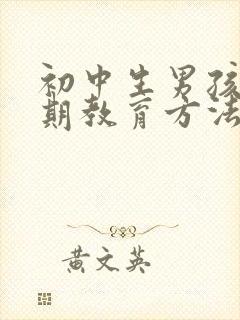 初中生男孩
期教育方法
黄文英